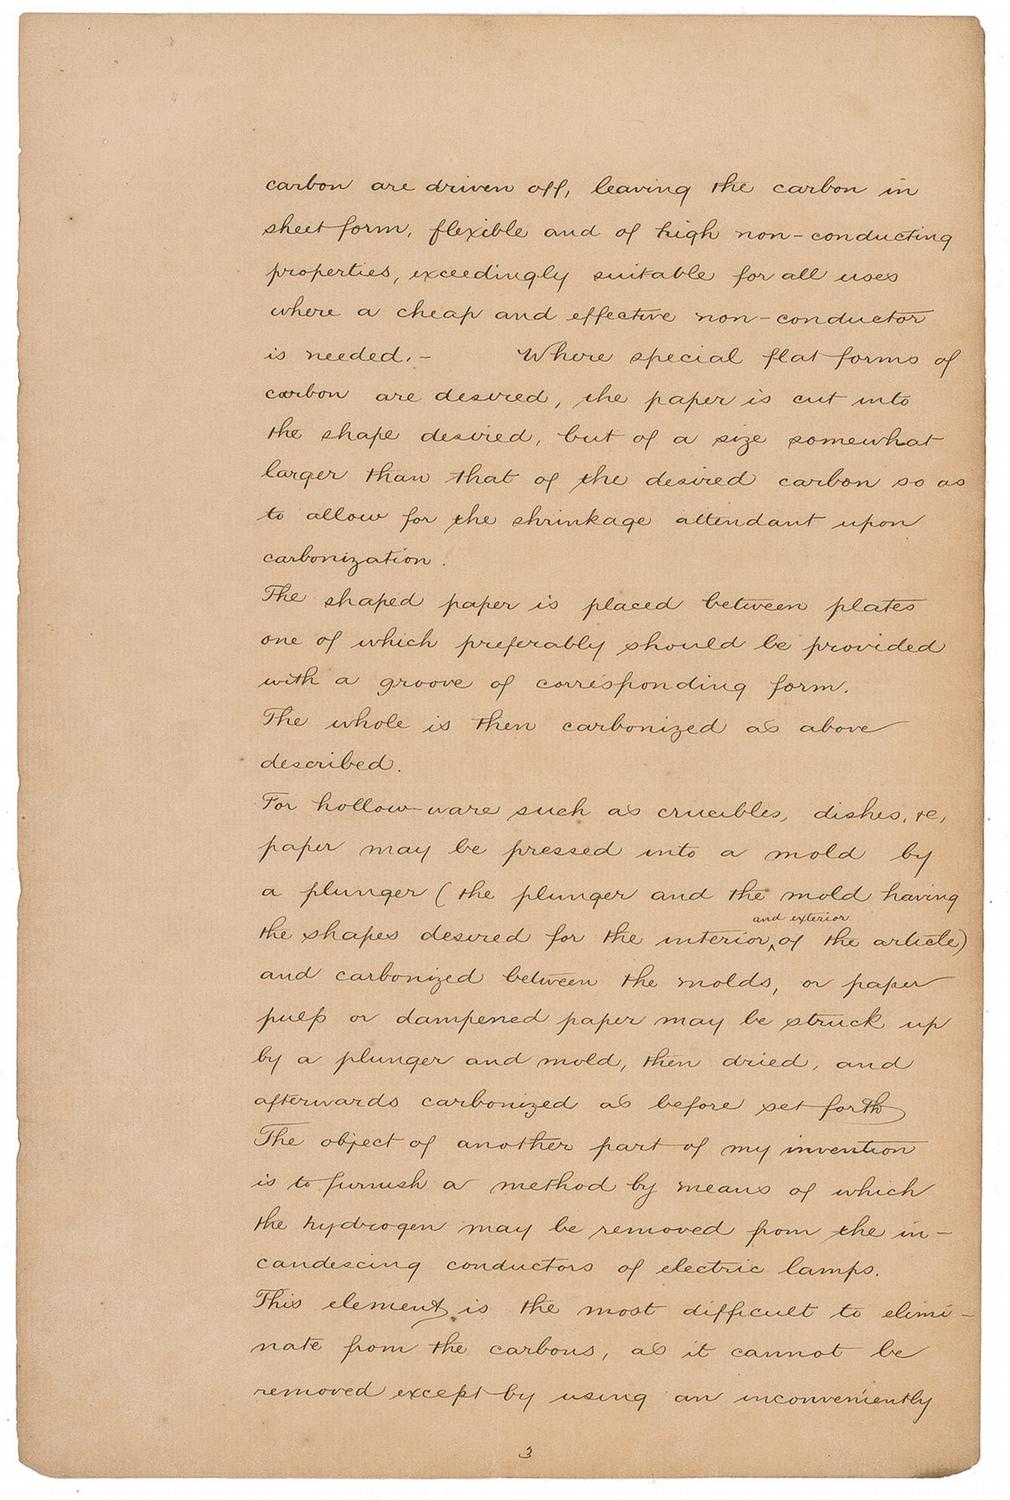 carbon are driven off, leaving the carbon in
sheet form, flexible and of high non-conducting
properties, exceedingly suitable for all uses
where a cheap and effective non-conductor
is needed.- Where special flat forms of
carbon are desired, the paper is cut into
the shape desired, but of a size somewhat
larger than that of the desired carbon so as
to allow for the shrinkage attendant upon
carbonization.
The shaped paper is placed between plates
one of which preferably should be provided
with a groove of corresponding form.
The whole is then carbonized as above
described.
For hollow-ware such as crucibles, dishes, &c,
paper may be pressed into a mold by
a plunger (the plunger and the mold having
and exterior
the shapes desired for the interior,‸of the article)
and carbonized between the molds, or paper
pulp or dampened paper may be struck up
by a plunger and mold, then dried, and
afterwards carbonized as before set forth
The object of another part of my invention
is to furnish a method by means of which
the hydrogen may be removed from the in-
candescing conductors of electric lamps.
This element is the most difficult to elimi-
nate from the carbons, as it cannot be
removed except by using an inconveniently
3